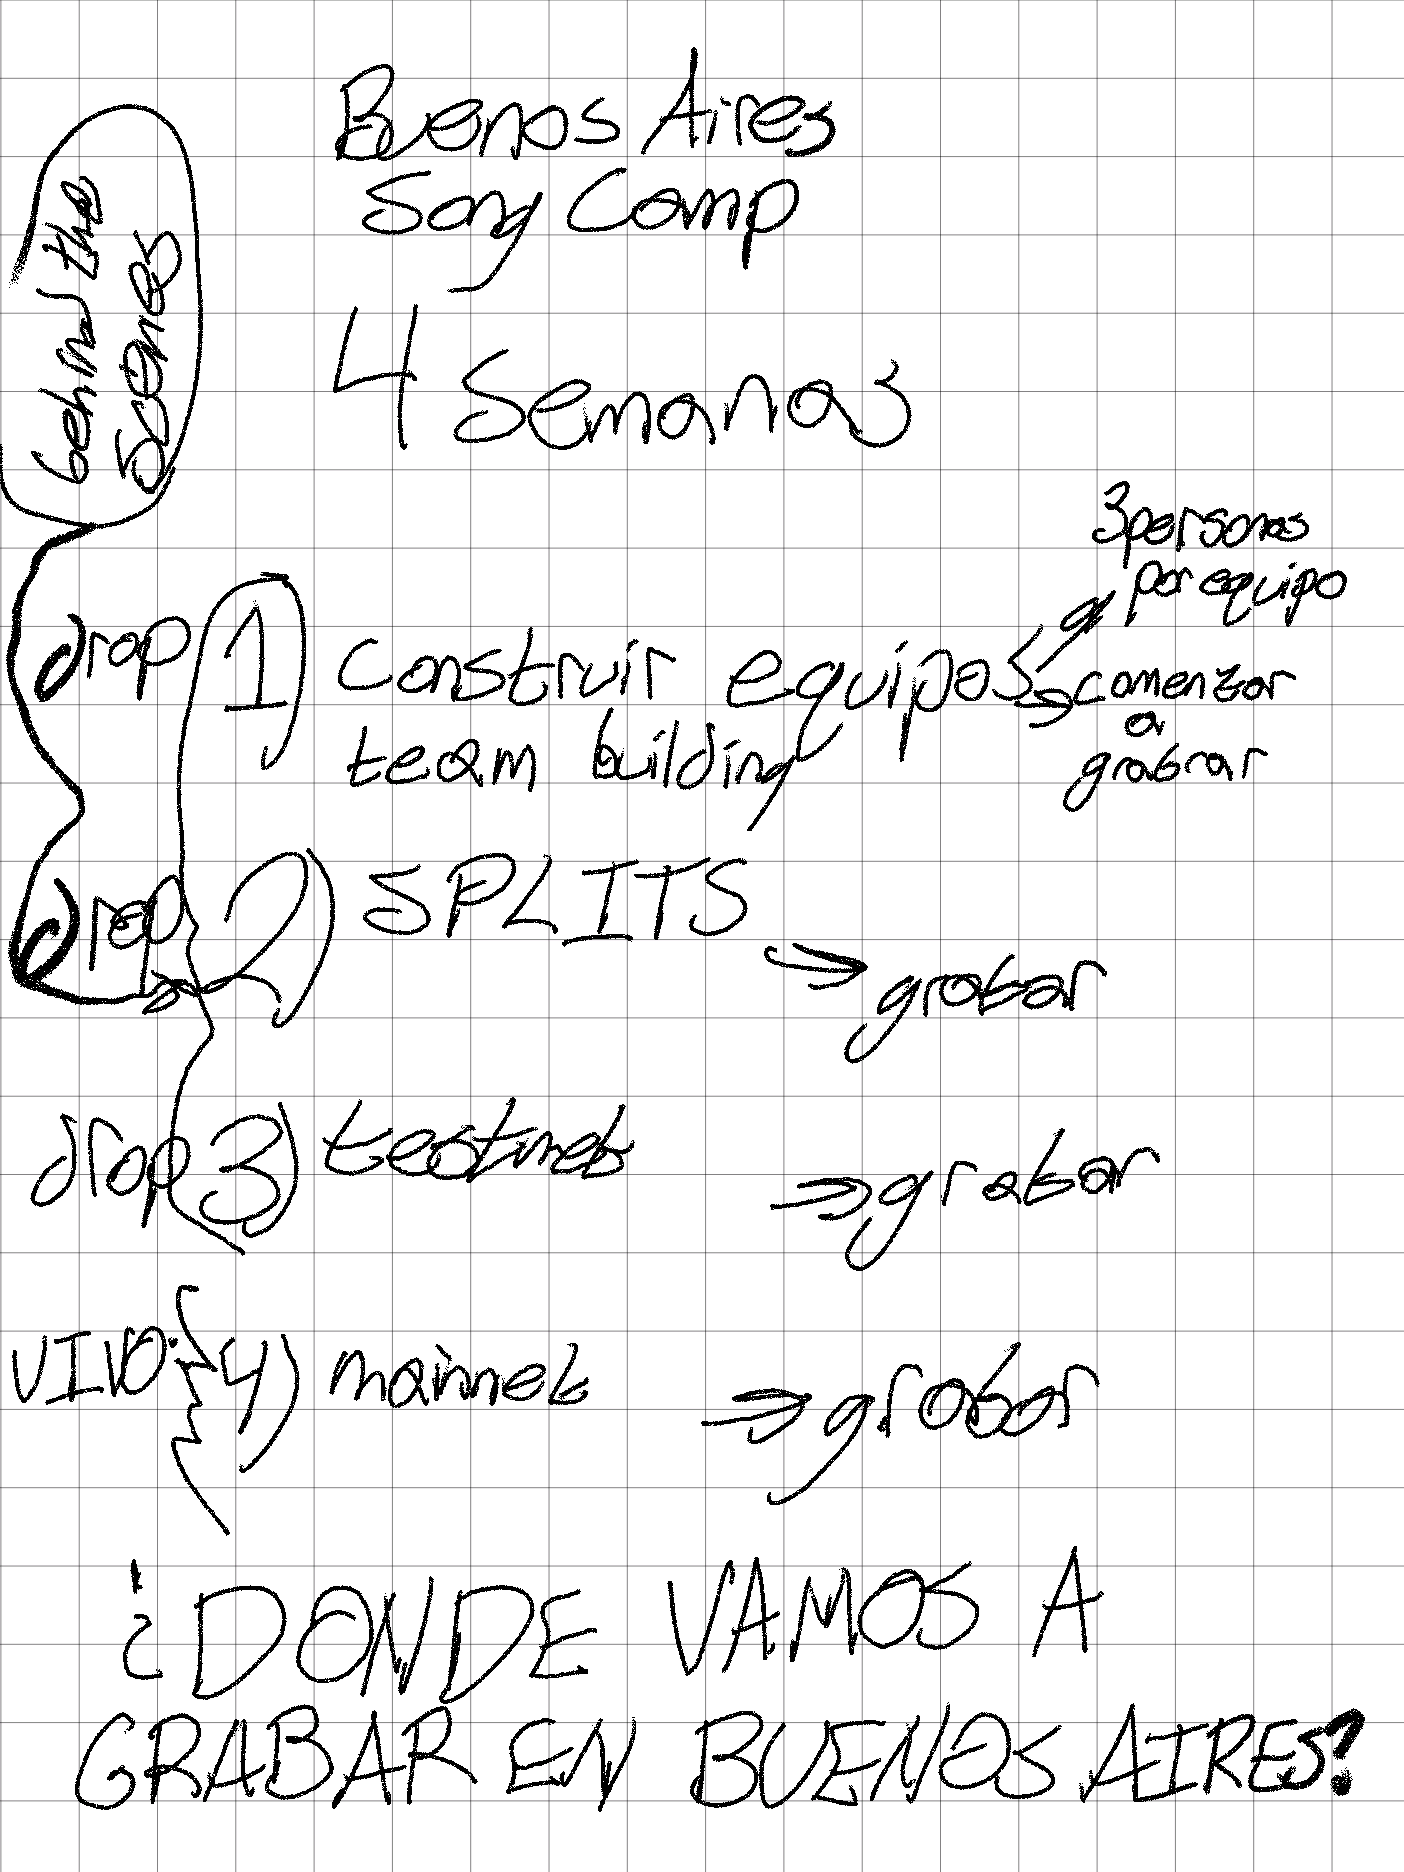 Buenos Aires
Song Camp
4 Semanas
behind the
scenes
3 personas
por equipo
drop 1) Construir equipos
team building
comenzar
a
grabrar
drop 2) SPLITS
grabar
drop 3) testnet
grabar
VIVO: 4) mainnet
grabar
¿DONDE VAMOS A
GRABAR EN BUENOS AIRES?